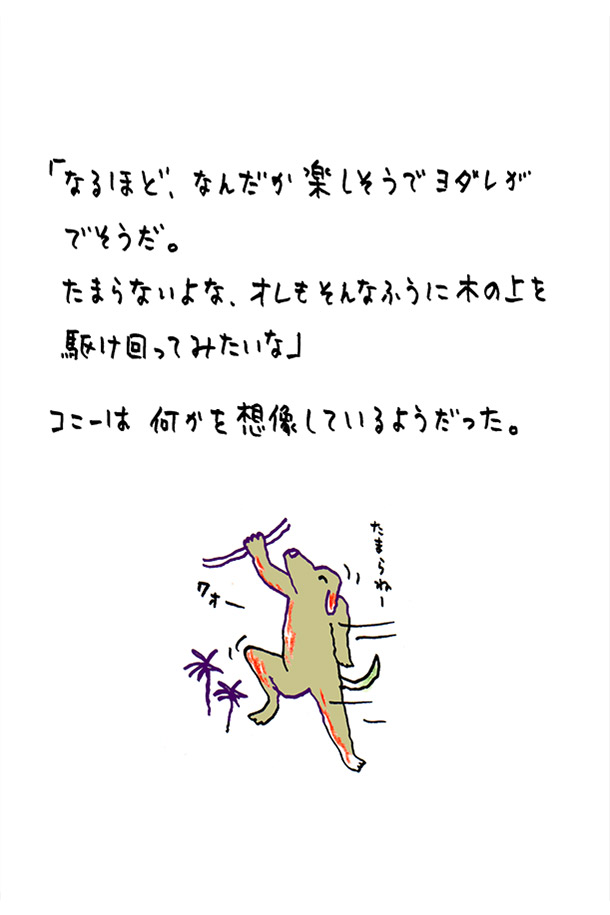 「なるほど、なんだか楽しそうでヨダレが
でそうだ。
たまらないよな、オレもそんなふうに木の上を
駆け回ってみたいな」
コニーは 何かを想像しているようだった。
たまらねー
ワォー